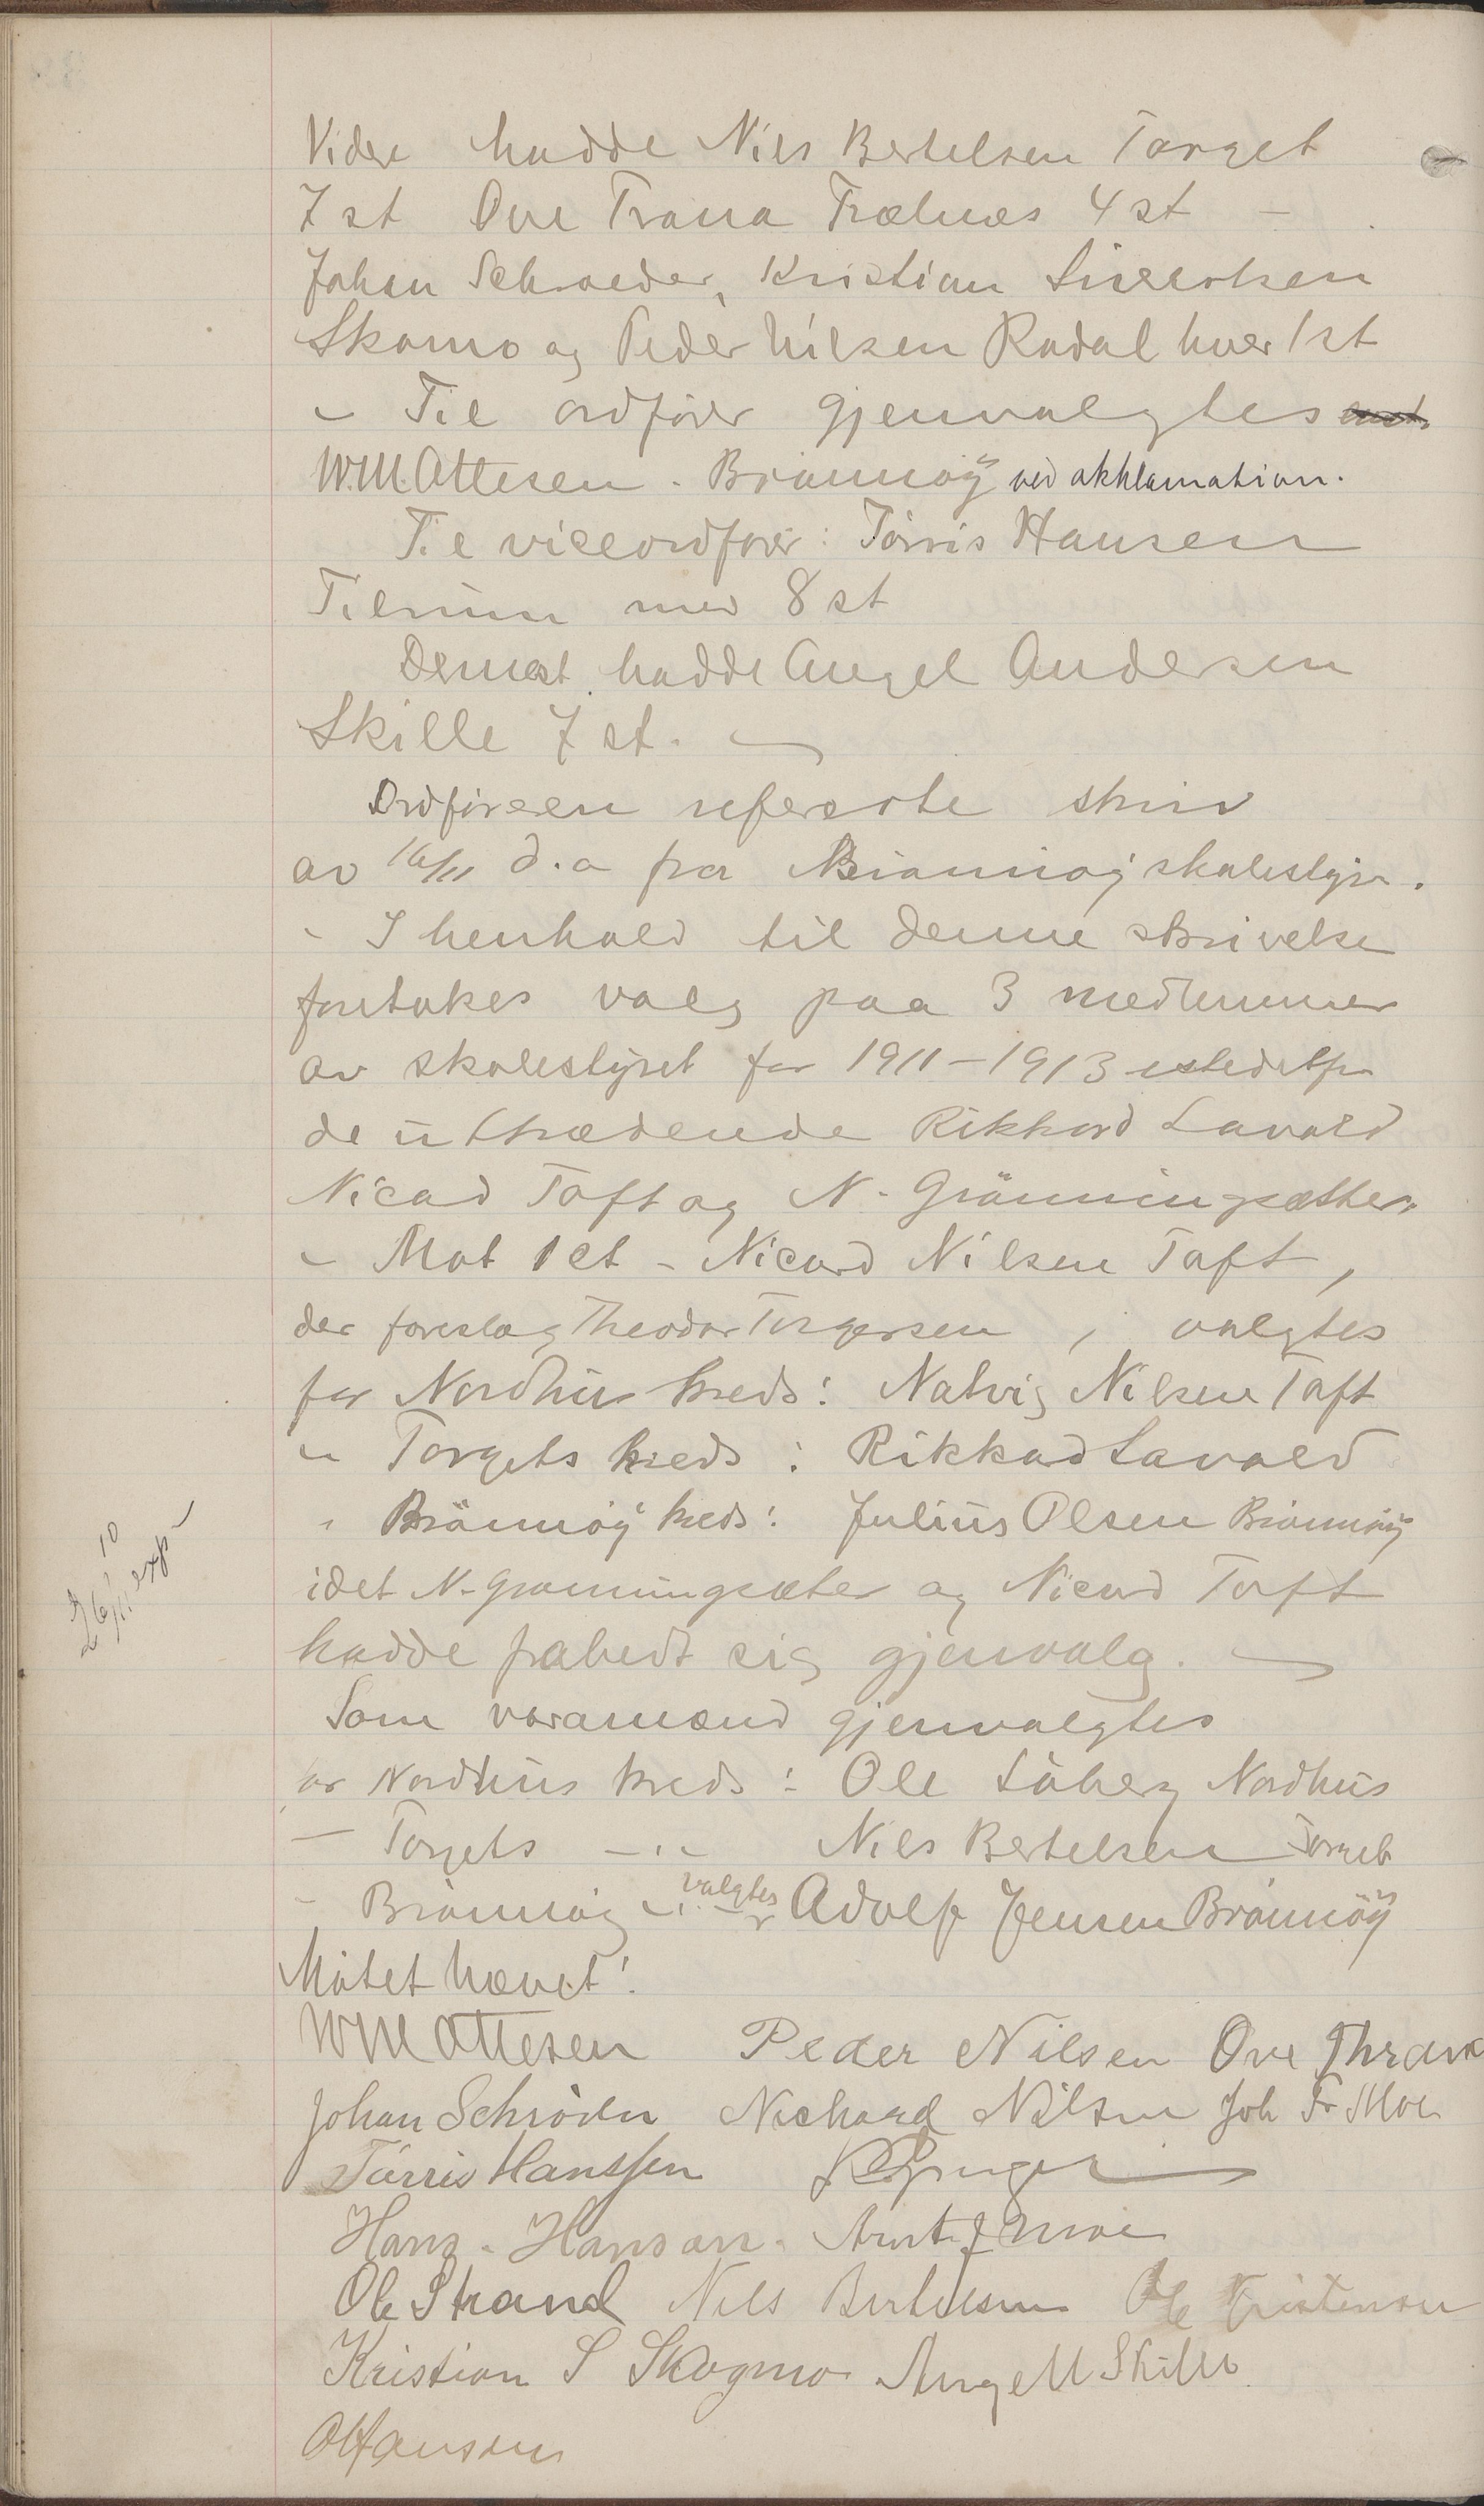 Videre hadde Nils Bertelsen Torget
7 st Ove Trana Trælnæs 4 st –
Johan Schrøder, Kristian Sivertsen
Skomo og Peder Nilsen Rodal hver 1 st
– Til ordfører gjenvalgtes
W.M. Ottesen. Brønnøy ved akklamation.
Til viceordfører: Tørris Hansen
Tilrum med 8 st
Dernæst hadde Angel Andersen
Skille 7 st.
Ordføreren refererte skriv
av 16/11 d.a fra Brønnøy skolestyre.
- I henhold til denne skrivelse
foretokes valg paa 3 medlemmer
av skolestyret for 1911–1913 istedetfor
de uttrædende Rikkard Lavold
Nicard Toft og N. Grønningsæther.
– Mot 1 st – Nicard Nilsen Toft,
der foreslog Theodor Torgersen, valgtes
for Nordhus kreds: Nalvig Nilsen Toft
" Torgets kreds: Rikkard Lavold
" Brønnøy kreds: Julius Olsen Brønnøy
idet N. Grønningsæter og Nicard Toft
hadde frabedt sig gjenvalg.
26/11 10 exp.
Som varamænd gjenvalgtes
for Nordhus kreds: Ole Løberg Nordhus
— Torgets —"— Nils Bertelsen Torget
– Brønnøy —"— valgtes Adolf Jensen Brønnøy
Møtet hævet!
WM Ottesen Peder Nilsen Ove Thrana
Johan Schrøder Nichard Nilsen Joh Fr Moe
Tørris Hanssen
Hans. Hansen. Arnt J Moe
Ole Strand Nils Bertelsen Ole Kristensen
Kristian S Skogmo Angell Skille
O Hansen